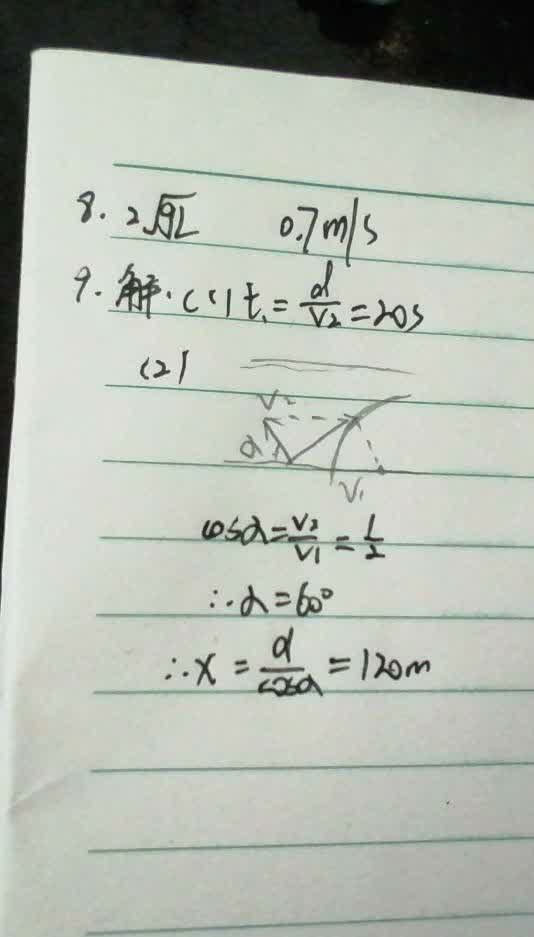 8. 2√gL 0.7m/s
9. 解. (1) t₁ = d/v₂ = 20s
(2)
v₂
α
v₁
cosα = v₂/v₁ = 1/2
∴ α = 60°
∴ x = d/cosα = 120m